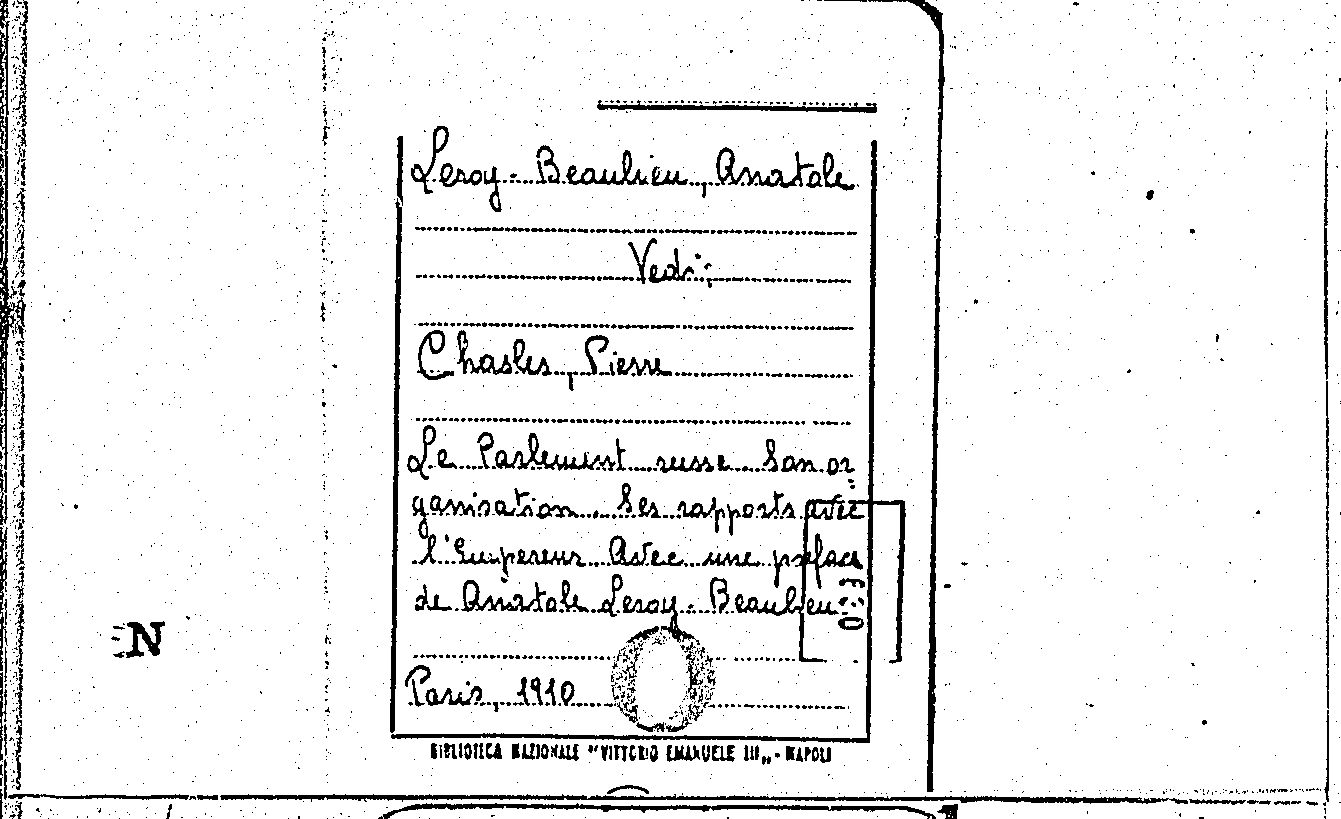 Leroy-Beaulieu, Anatole
Vedi:
Chasles, Pierre
Le Parlement russe. Son or
ganisation. Ses rapports avec
l'Empereur Avec une préface
de Anatole Leroy-Beaulieu
Paris, 1910
N
BIBLIOTECA NAZIONALE "VITTORIO EMANUELE III„ - NAPOLI